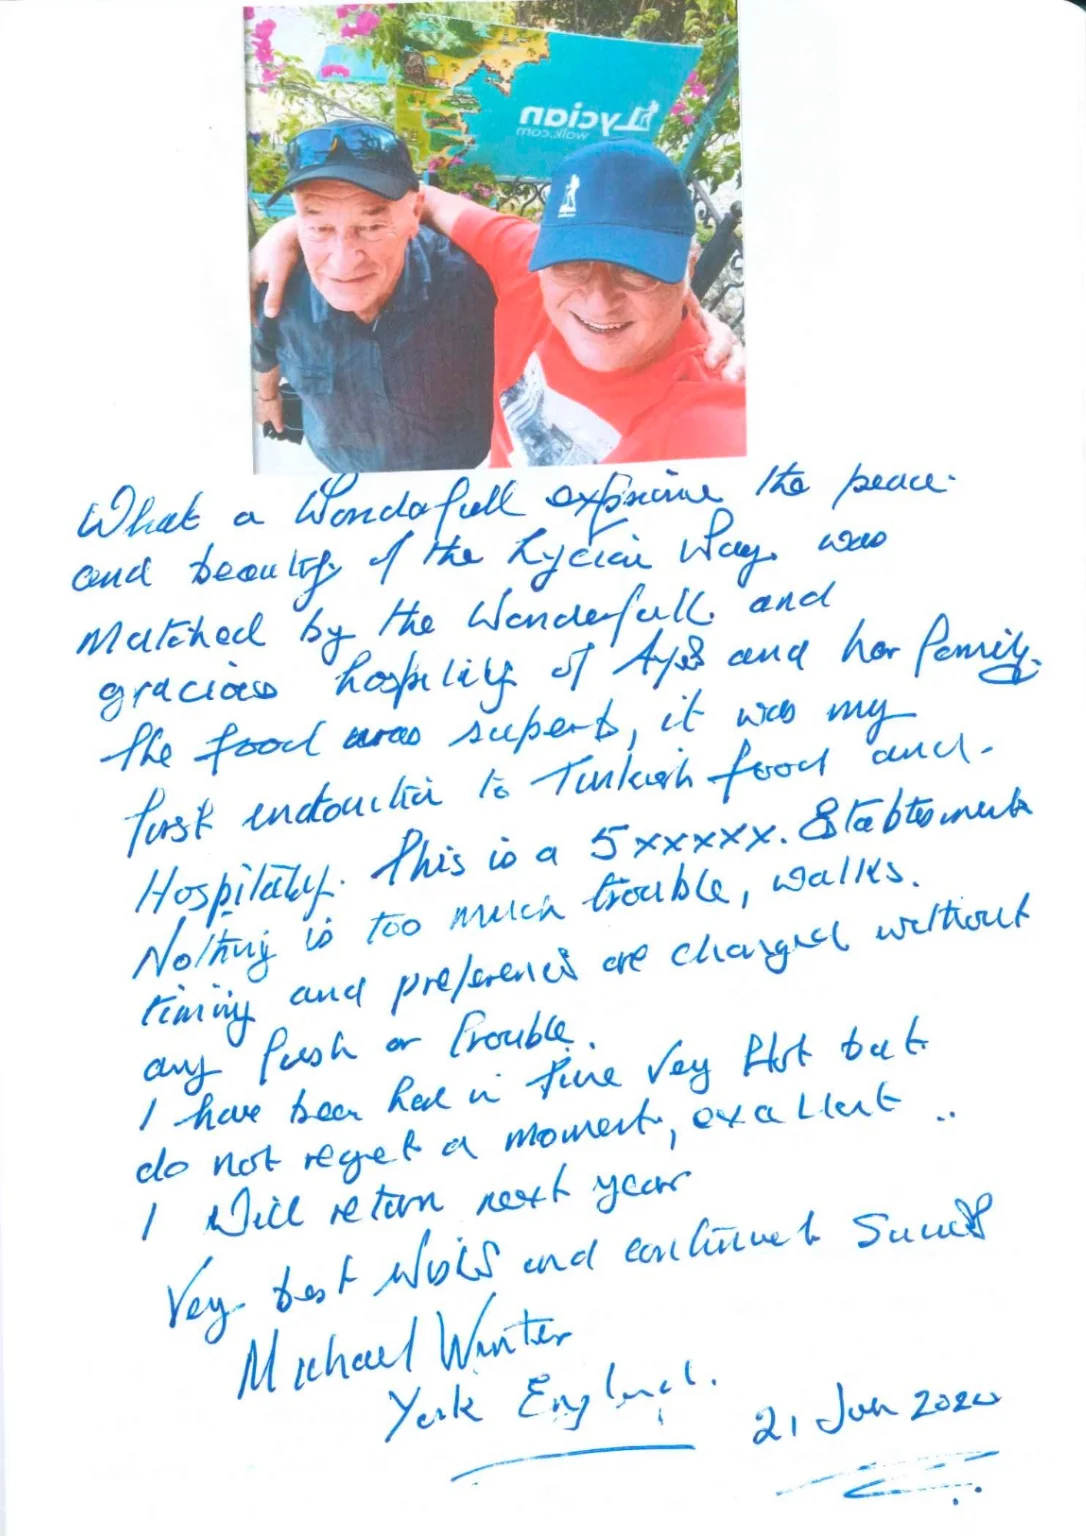 Lycian
walk.com
What a Wonderfull experience the peace
and beauty of the Lycian Way was
Matched by the Wonderfull and
gracious hospility of and her family.
the food was superb, it was my
first to Turkish food and -
Hospitality. This is a 5xxxxx.
Nothing is too much trouble, walks.
timing and preferences are changed without
any or trouble.
I have been here in June Very Hot but
do not regret a moment, excellent ..
I Will return next year
Very best Wishes and Success
Michael Winter
York England.
21 Jun